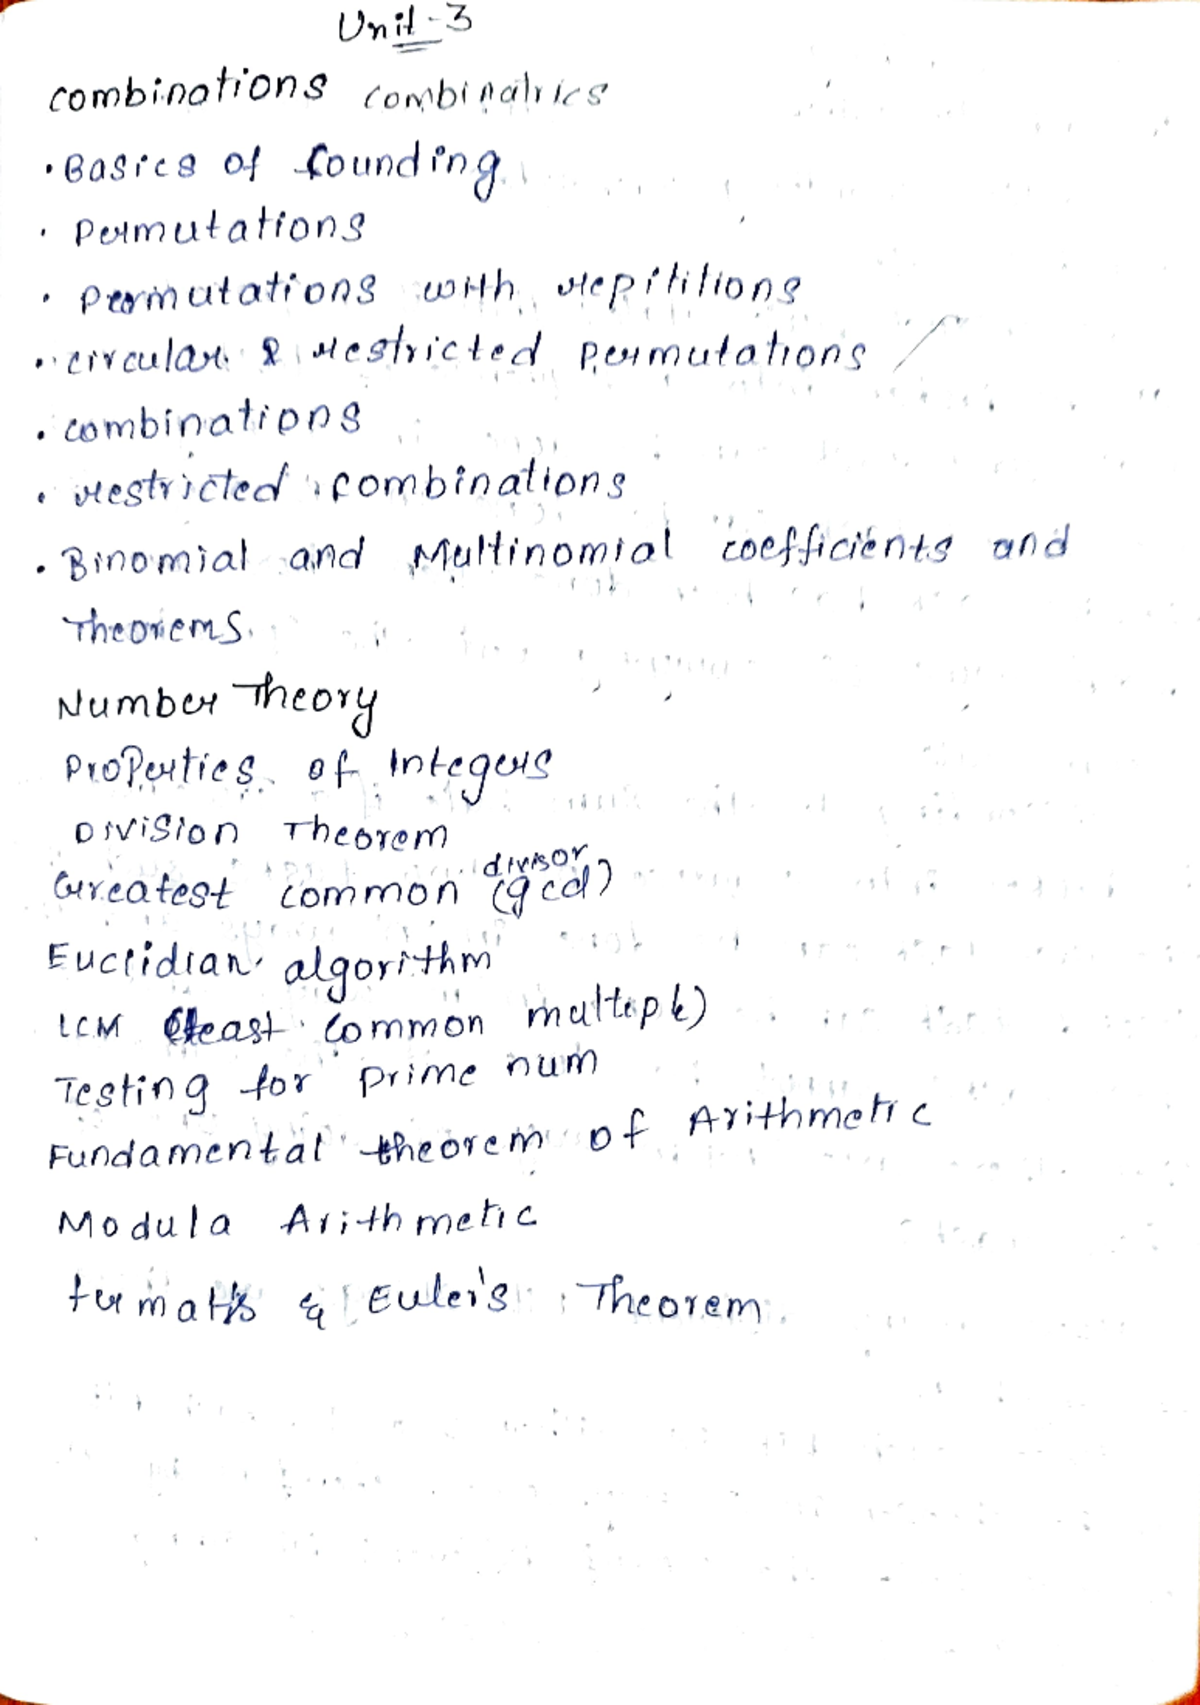 Unit-3
combinations combinatrics
• Basics of counding
• Permutations
• Permutations with repititions
• circular & restricted Permutations
• combinations
• restricted combinations
• Binomial and Multinomial coefficients and
Theorems.
Number Theory
Properties of Integers
Division Theorem
divisor
Greatest common (gcd)
Euclidian algorithm
LCM (least common multiple)
Testing for prime num
Fundamental theorem of Arithmetic
Modula Arithmetic
fermat's & Euler's Theorem.